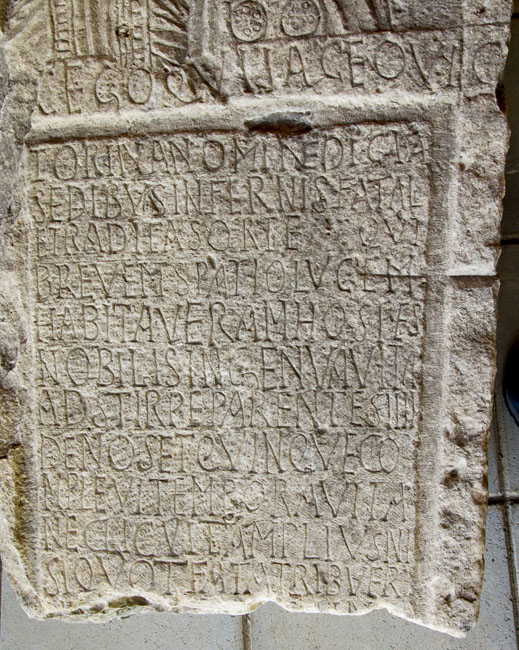 EGOQVIIACEOVIC
TORINANOMINEDICTA
SEDIBVSINFERNISFATAL
ETRADITASORTE QVI
BREVEMSPATIOLVCEM
HABITAVERAMHOSPIS
NOBILISIMGENVAVITA
ADSTIRPEPARENTESTER
DENOSETQVINQVECO
MPLEVITEMPORAVITA
NECLICVITAMPLIVSNI
SIQVOTFATATRIBVER